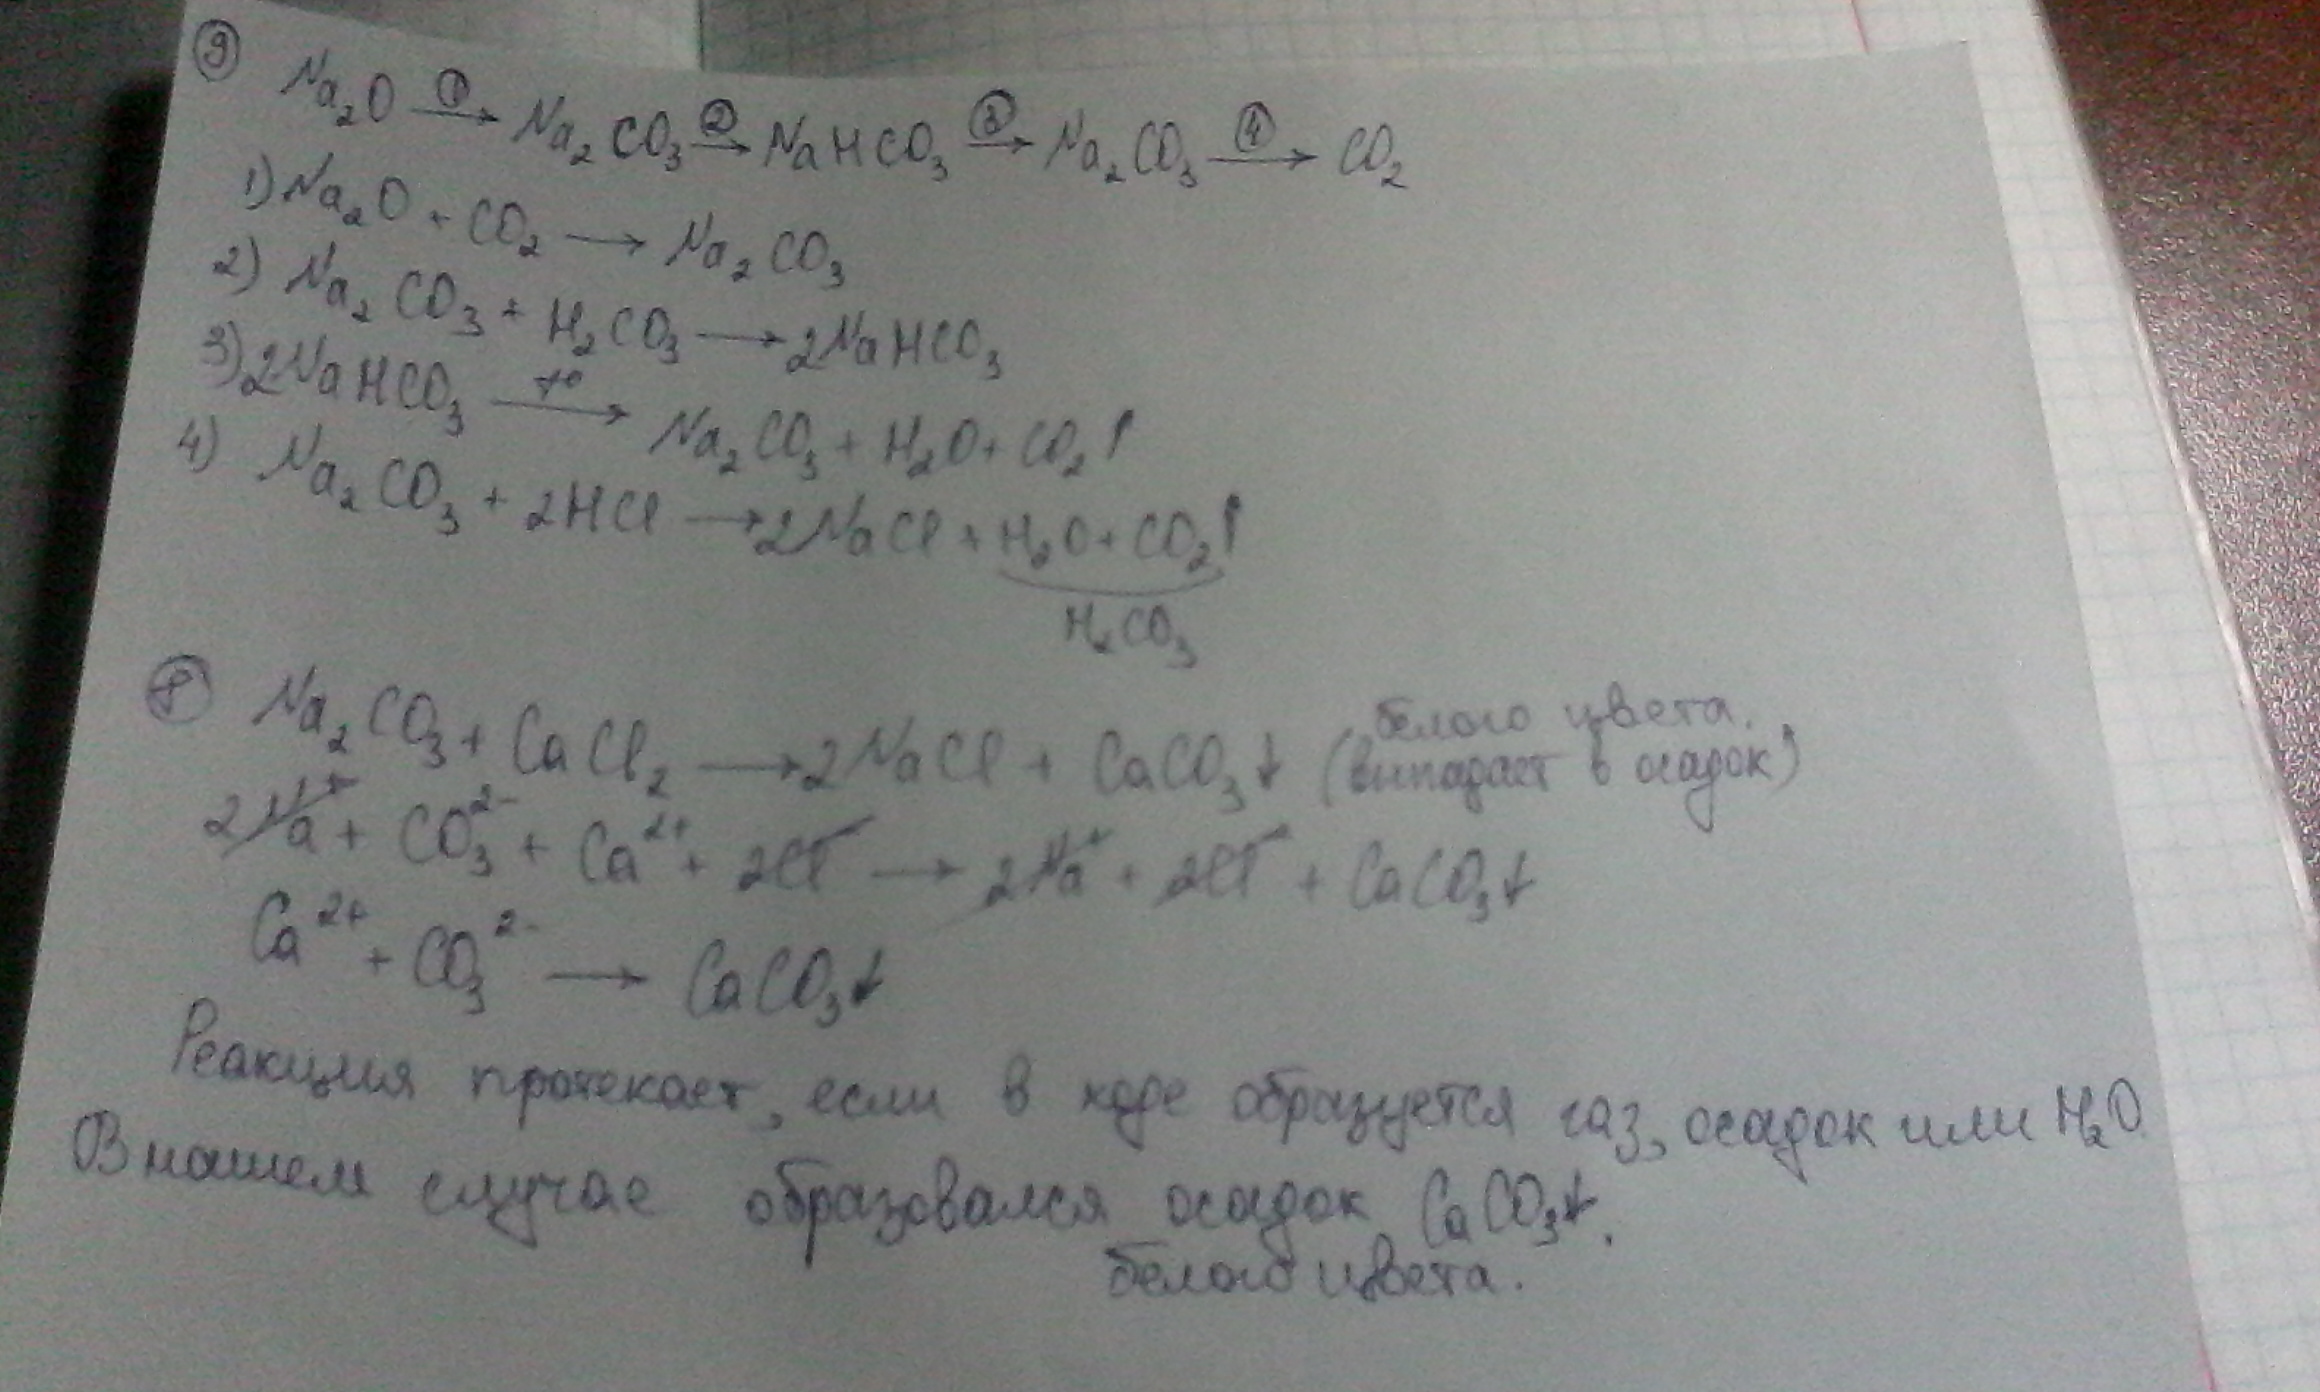 ⑨ Na₂O ①→ Na₂CO₃ ②→ NaHCO₃ ③→ Na₂CO₃ ④→ CO₂
1) Na₂O + CO₂ → Na₂CO₃
2) Na₂CO₃ + H₂CO₃ → 2NaHCO₃
3) 2NaHCO₃ t°→ Na₂CO₃ + H₂O + CO₂↑
4) Na₂CO₃ + 2HCl → 2NaCl + H₂O + CO₂↑
H₂CO₃
⑧ Na₂CO₃ + CaCl₂ → 2NaCl + CaCO₃↓ (выпадает в осадок)
белого цвета.
2Na⁺ + CO₃²⁻ + Ca²⁺ + 2Cl⁻ → 2Na⁺ + 2Cl⁻ + CaCO₃↓
Ca²⁺ + CO₃²⁻ → CaCO₃↓
Реакция протекает, если в ходе образуется газ, осадок или H₂O.
В нашем случае образовался осадок CaCO₃↓.
белого цвета.